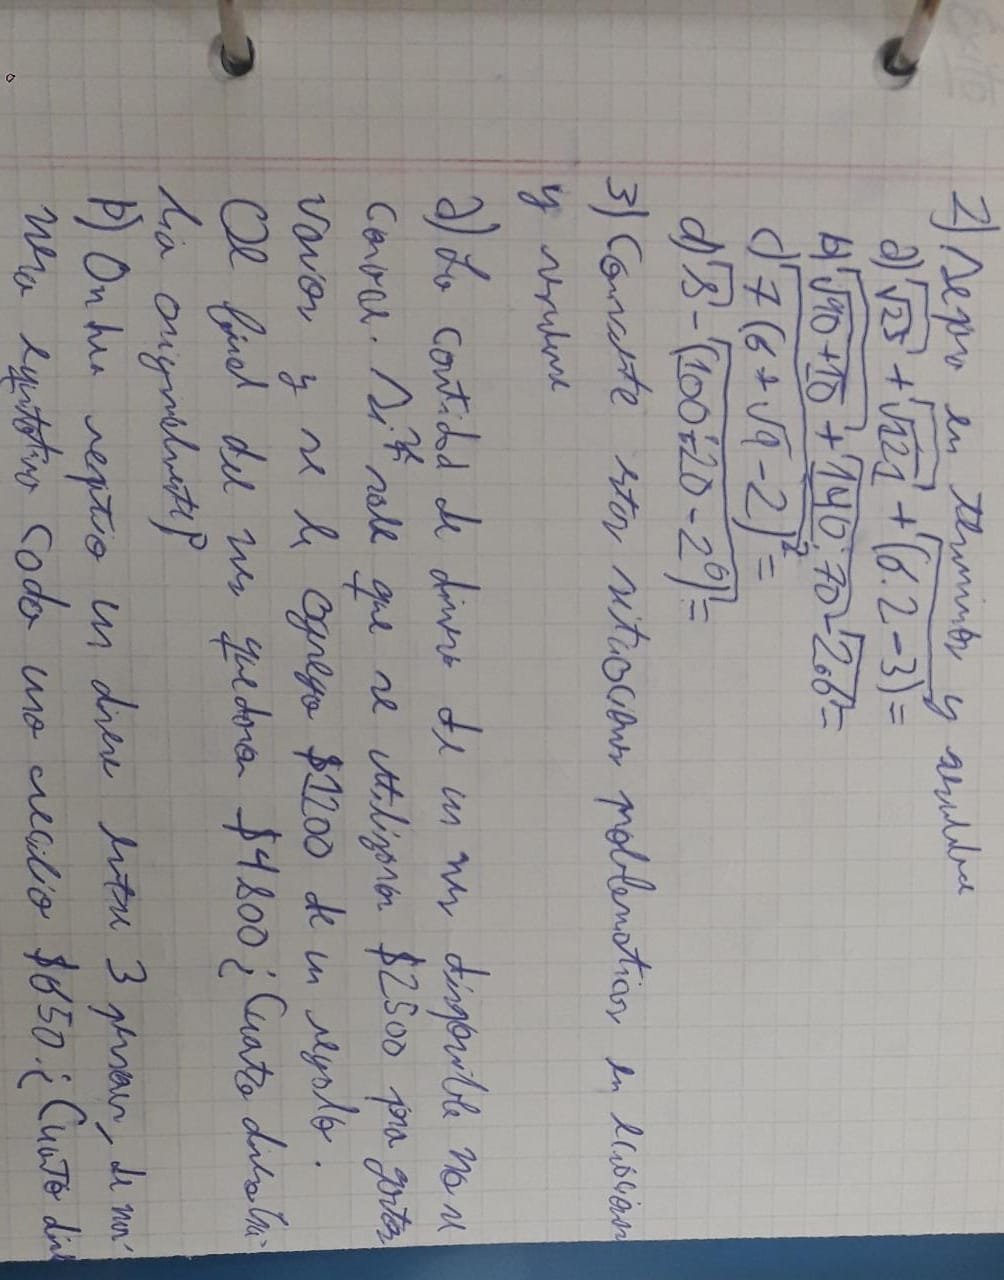 1) Separo en terminos y resuelvo
a) √25 + √121 + (6.2-3) =
b) √90+10 + 140:70 - 2.6 =
c) 7(6+√9-2)² =
d) 8-(100:20-2⁰) =
3) Convierte estas situaciones problematicas en
y resuelve
a) La cantidad de dinero de un mes disponible no se
conoce. Si se sabe que se utilizaron $2500 para gastos
varios y se le agrego $1200 de un regalo.
Al final del mes quedaron $4800 ¿Cuanto dinero ha-
bia originalmente?
b) Ontem repartio un dinero entre 3 personas, de ma-
nera equitativa Cada uno recibio $650. ¿Cuanto din